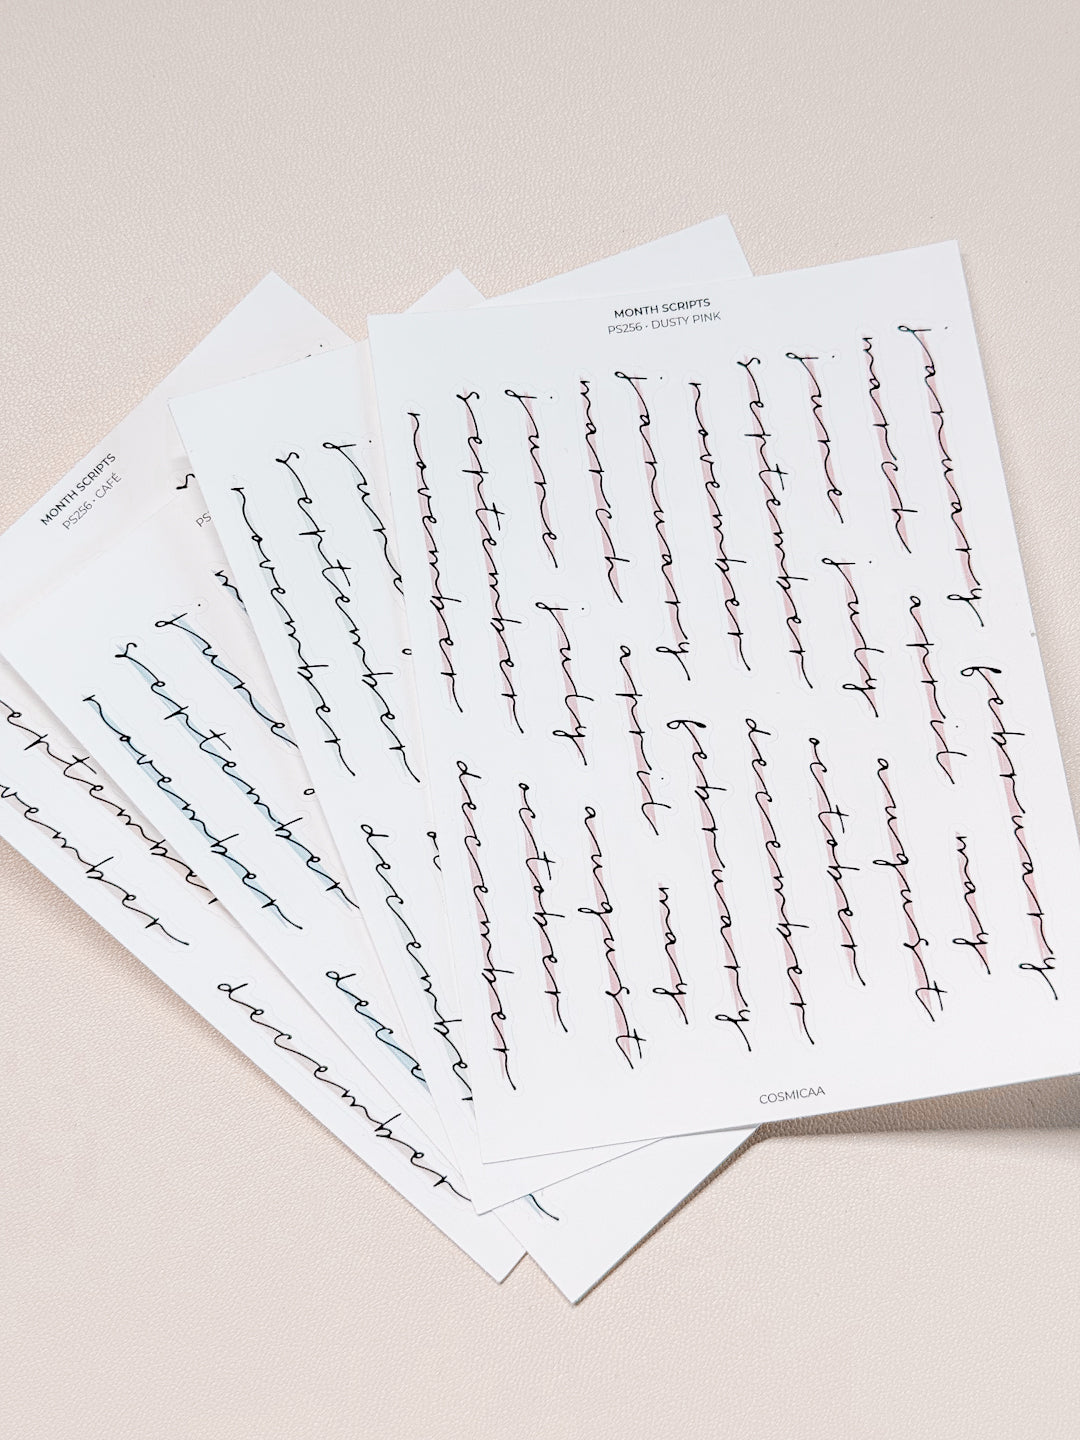 MONTH SCRIPTS
PS256 • DUSTY PINK
january
march
june
september
november
january
march
june
september
november
february
april
july
february
april
july
may
august
october
december
may
august
october
december
COSMICAA
june
september
november
december
PS
june
september
november
MONTH SCRIPTS
PS256 • CAFÉ
december